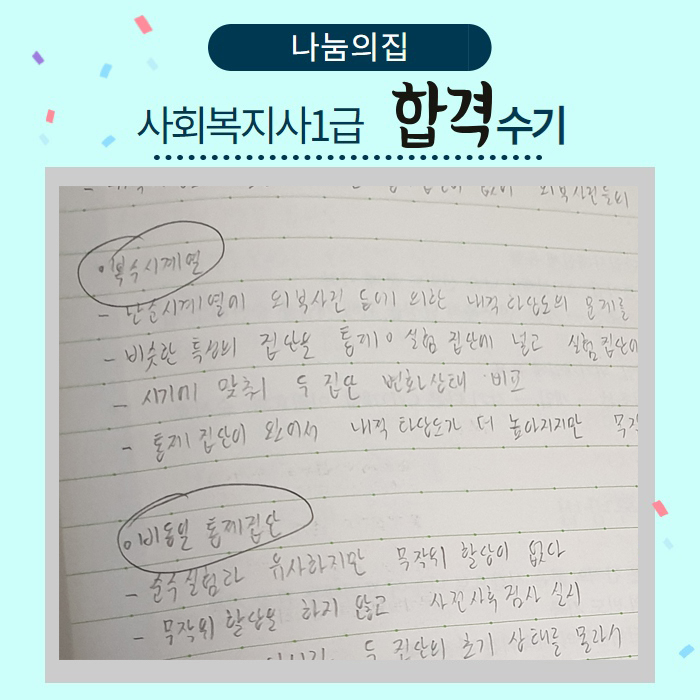 나눔의집
사회복지사1급 합격수기
외부사건들이
•복수시계열
- 단순시계열에 외부사건 등에 의한 내적타당도의 문제를
- 비슷한 특성의 집단을 통제 실험 집단에 넣고 실험집단에
- 시기에 맞춰 두 집단 변화상태 비교
- 통제집단이 있어서 내적 타당도가 더 높아지지만 무작
•비동일 통제집단
- 순수실험과 유사하지만 무작위 할당이 없다
- 무작위 할당을 하지 않고 사전사후검사 실시
두 집단의 초기 상태를 몰라서